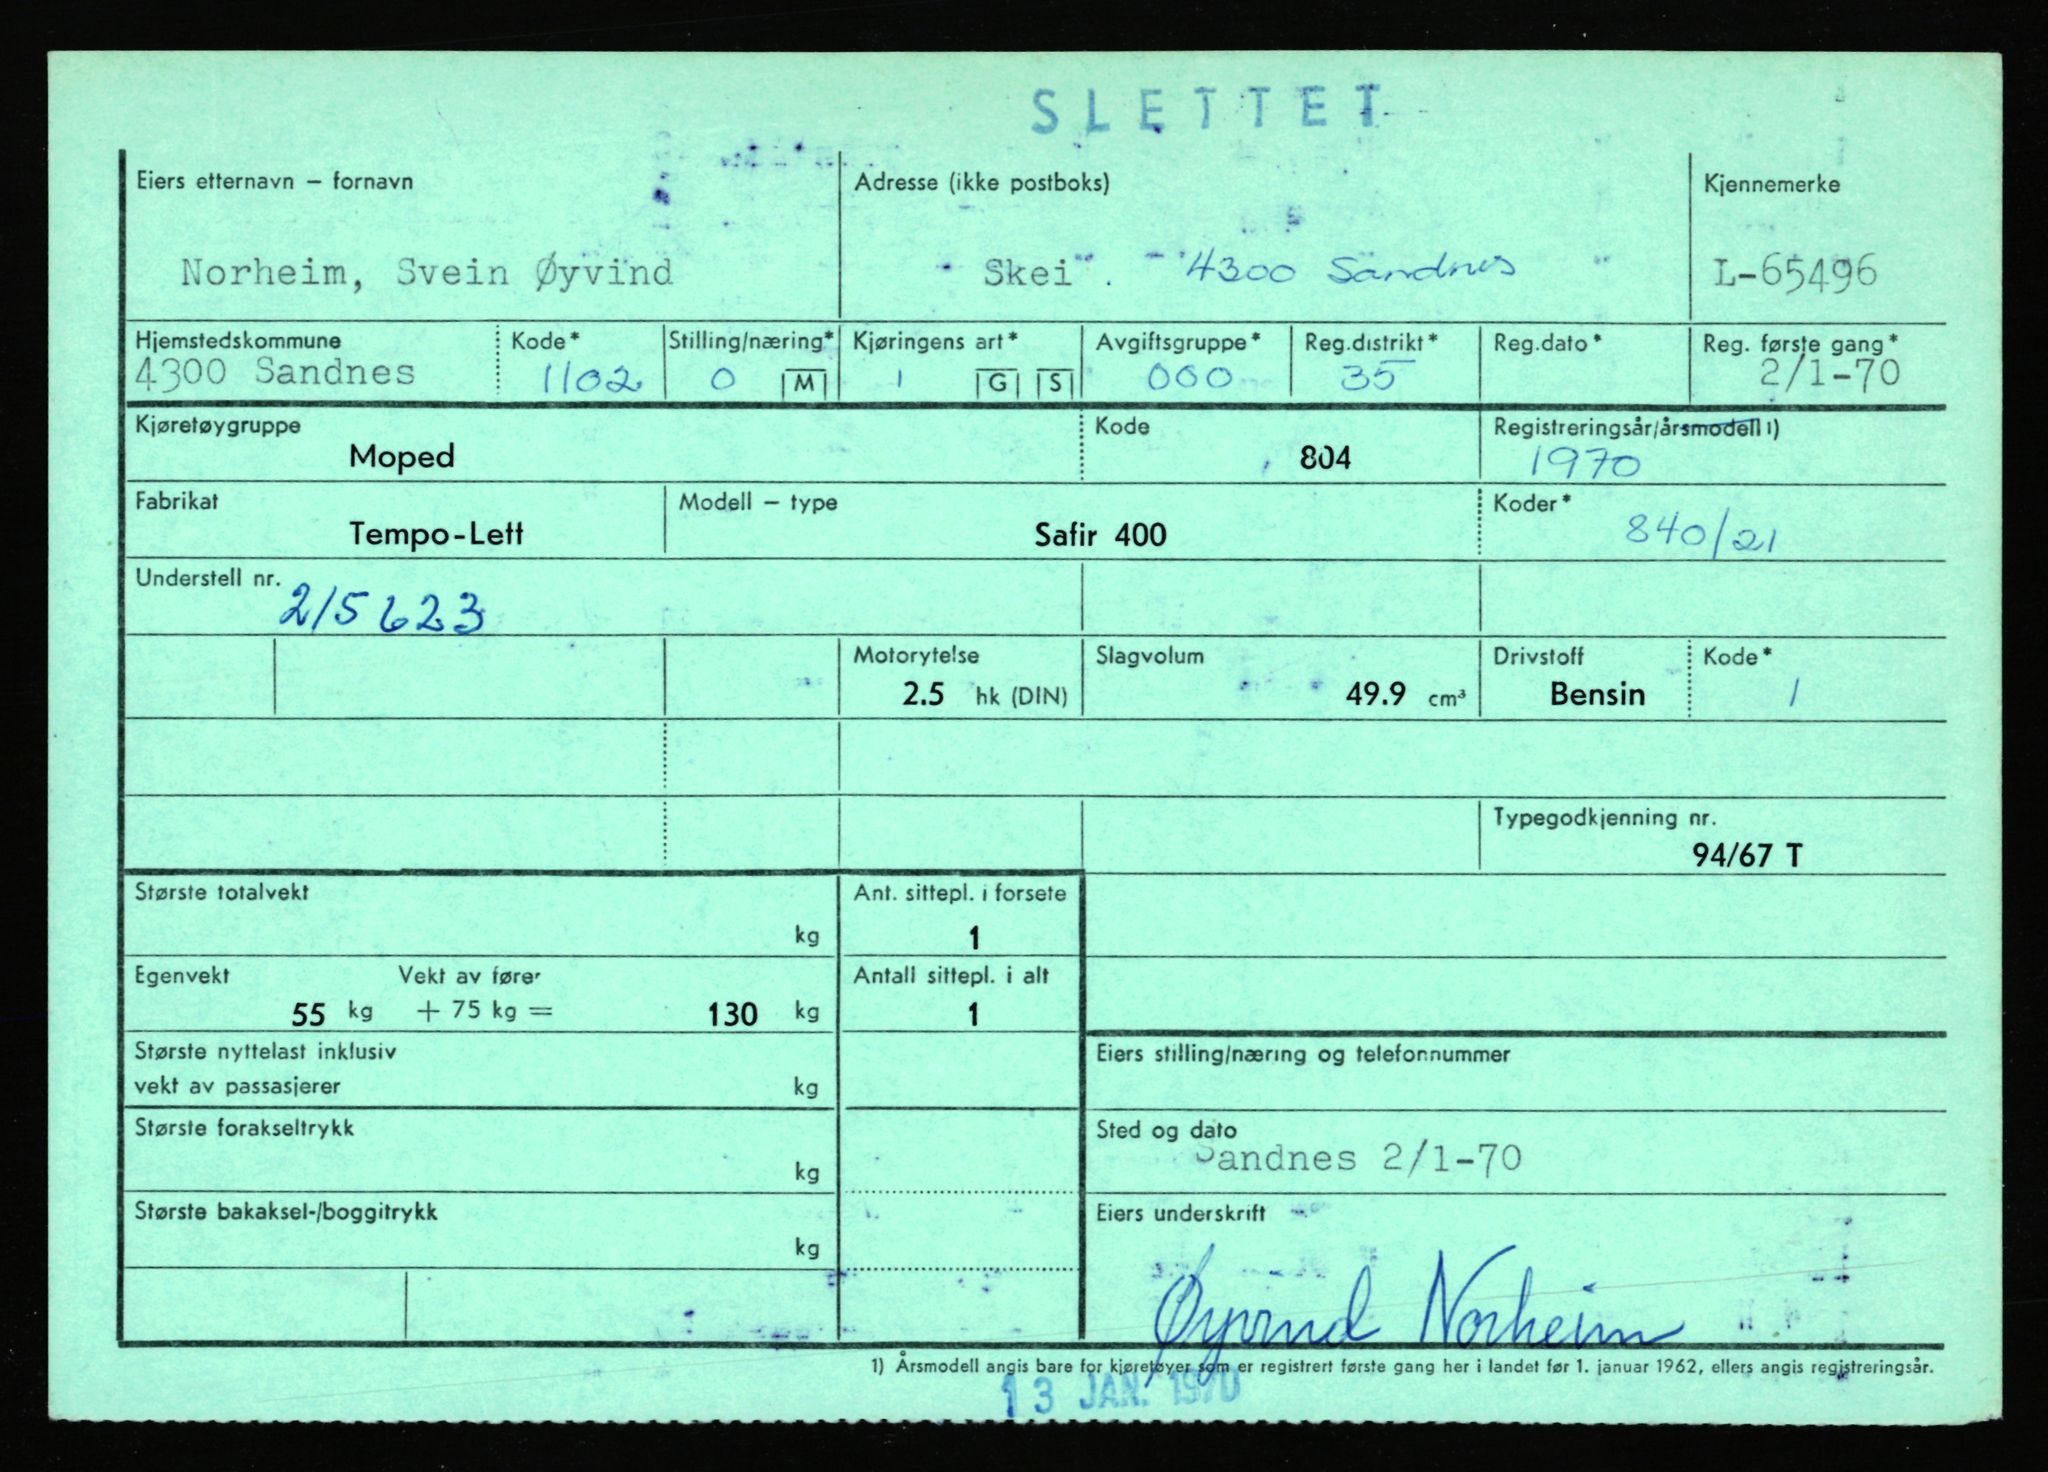 SLETTET
Eiers etternavn – fornavn Adresse (ikke postboks) Kjennemerke
Norheim, Svein Øyvind Skei . 4300 Sandnes L-65496
Hjemstedskommune Kode* Stilling/næring* Kjøringens art* Avgiftsgruppe* Reg.distrikt* Reg.dato* Reg. første gang*
4300 Sandnes 1102 0 M 1 G S 000 35 2/1-70
Kjøretøygruppe Kode Registreringsår/årsmodell 1)
Moped 804 1970
Fabrikat Modell – type Koder*
Tempo-Lett Safir 400 840/21
Understell nr.
215623
Motorytelse Slagvolum Drivstoff Kode*
2.5 hk (DIN) 49.9 cm³ Bensin 1
Typegodkjenning nr.
94/67 T
Største totalvekt Ant. sittepl. i forsete
kg 1
Egenvekt Vekt av fører Antall sittepl. i alt
55 kg + 75 kg = 130 kg 1
Største nyttelast inklusiv Eiers stilling/næring og telefonnummer
vekt av passasjerer kg
Største forakseltrykk Sted og dato
kg Sandnes 2/1-70
Største bakaksel-/boggitrykk Eiers underskrift
kg
Øyvind Norheim
1) Årsmodell angis bare for kjøretøyer som er registrert første gang her i landet før 1. januar 1962, ellers angis registreringsår.
13 JAN. 1970